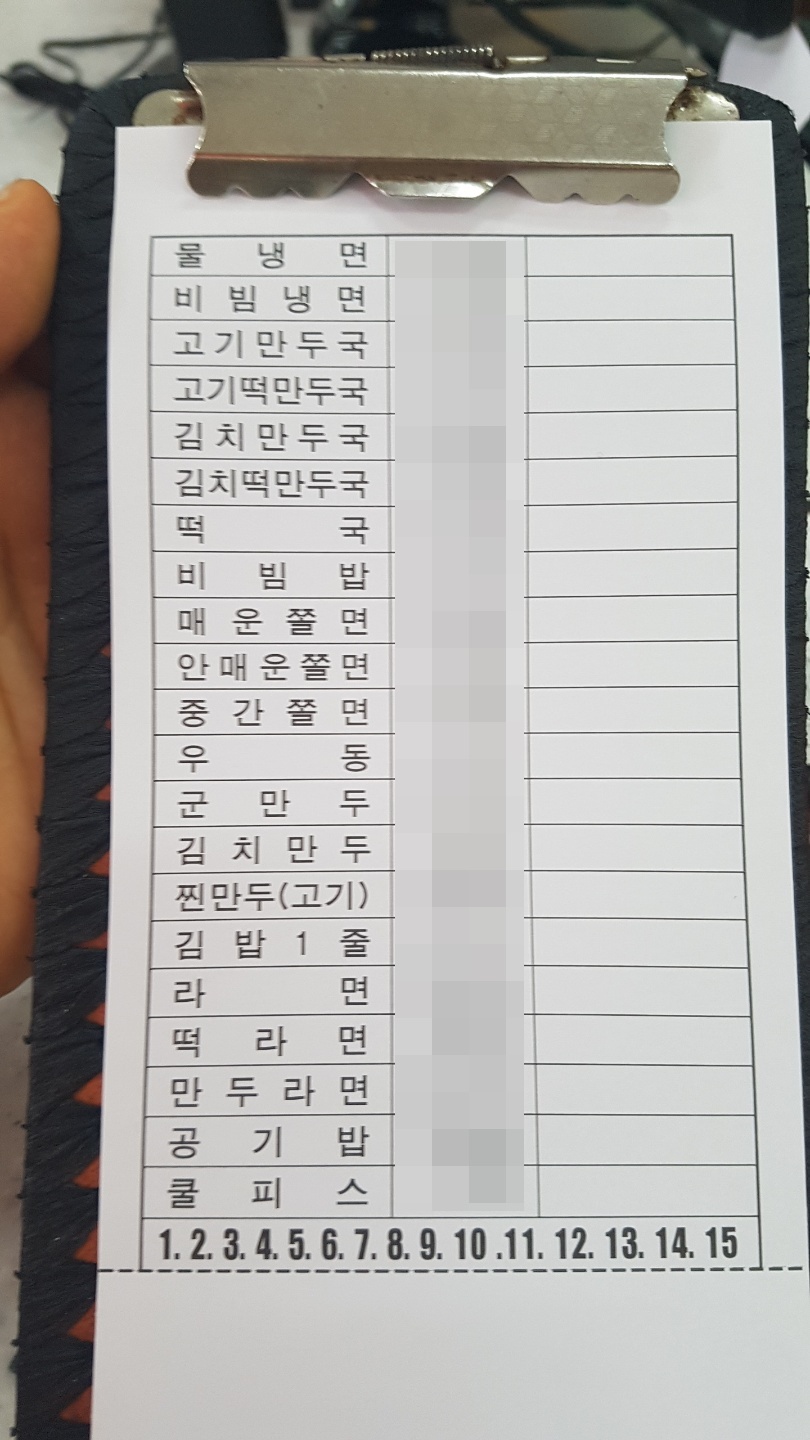 물 냉 면
비 빔 냉 면
고 기 만 두 국
고기떡만두국
김 치 만 두 국
김치떡만두국
떡 국
비 빔 밥
매 운 쫄 면
안 매 운 쫄 면
중 간 쫄 면
우 동
군 만 두
김 치 만 두
찐만두(고기)
김 밥 1 줄
라 면
떡 라 면
만 두 라 면
공 기 밥
쿨 피 스
1. 2. 3. 4. 5. 6. 7. 8. 9. 10 .11. 12. 13. 14. 15